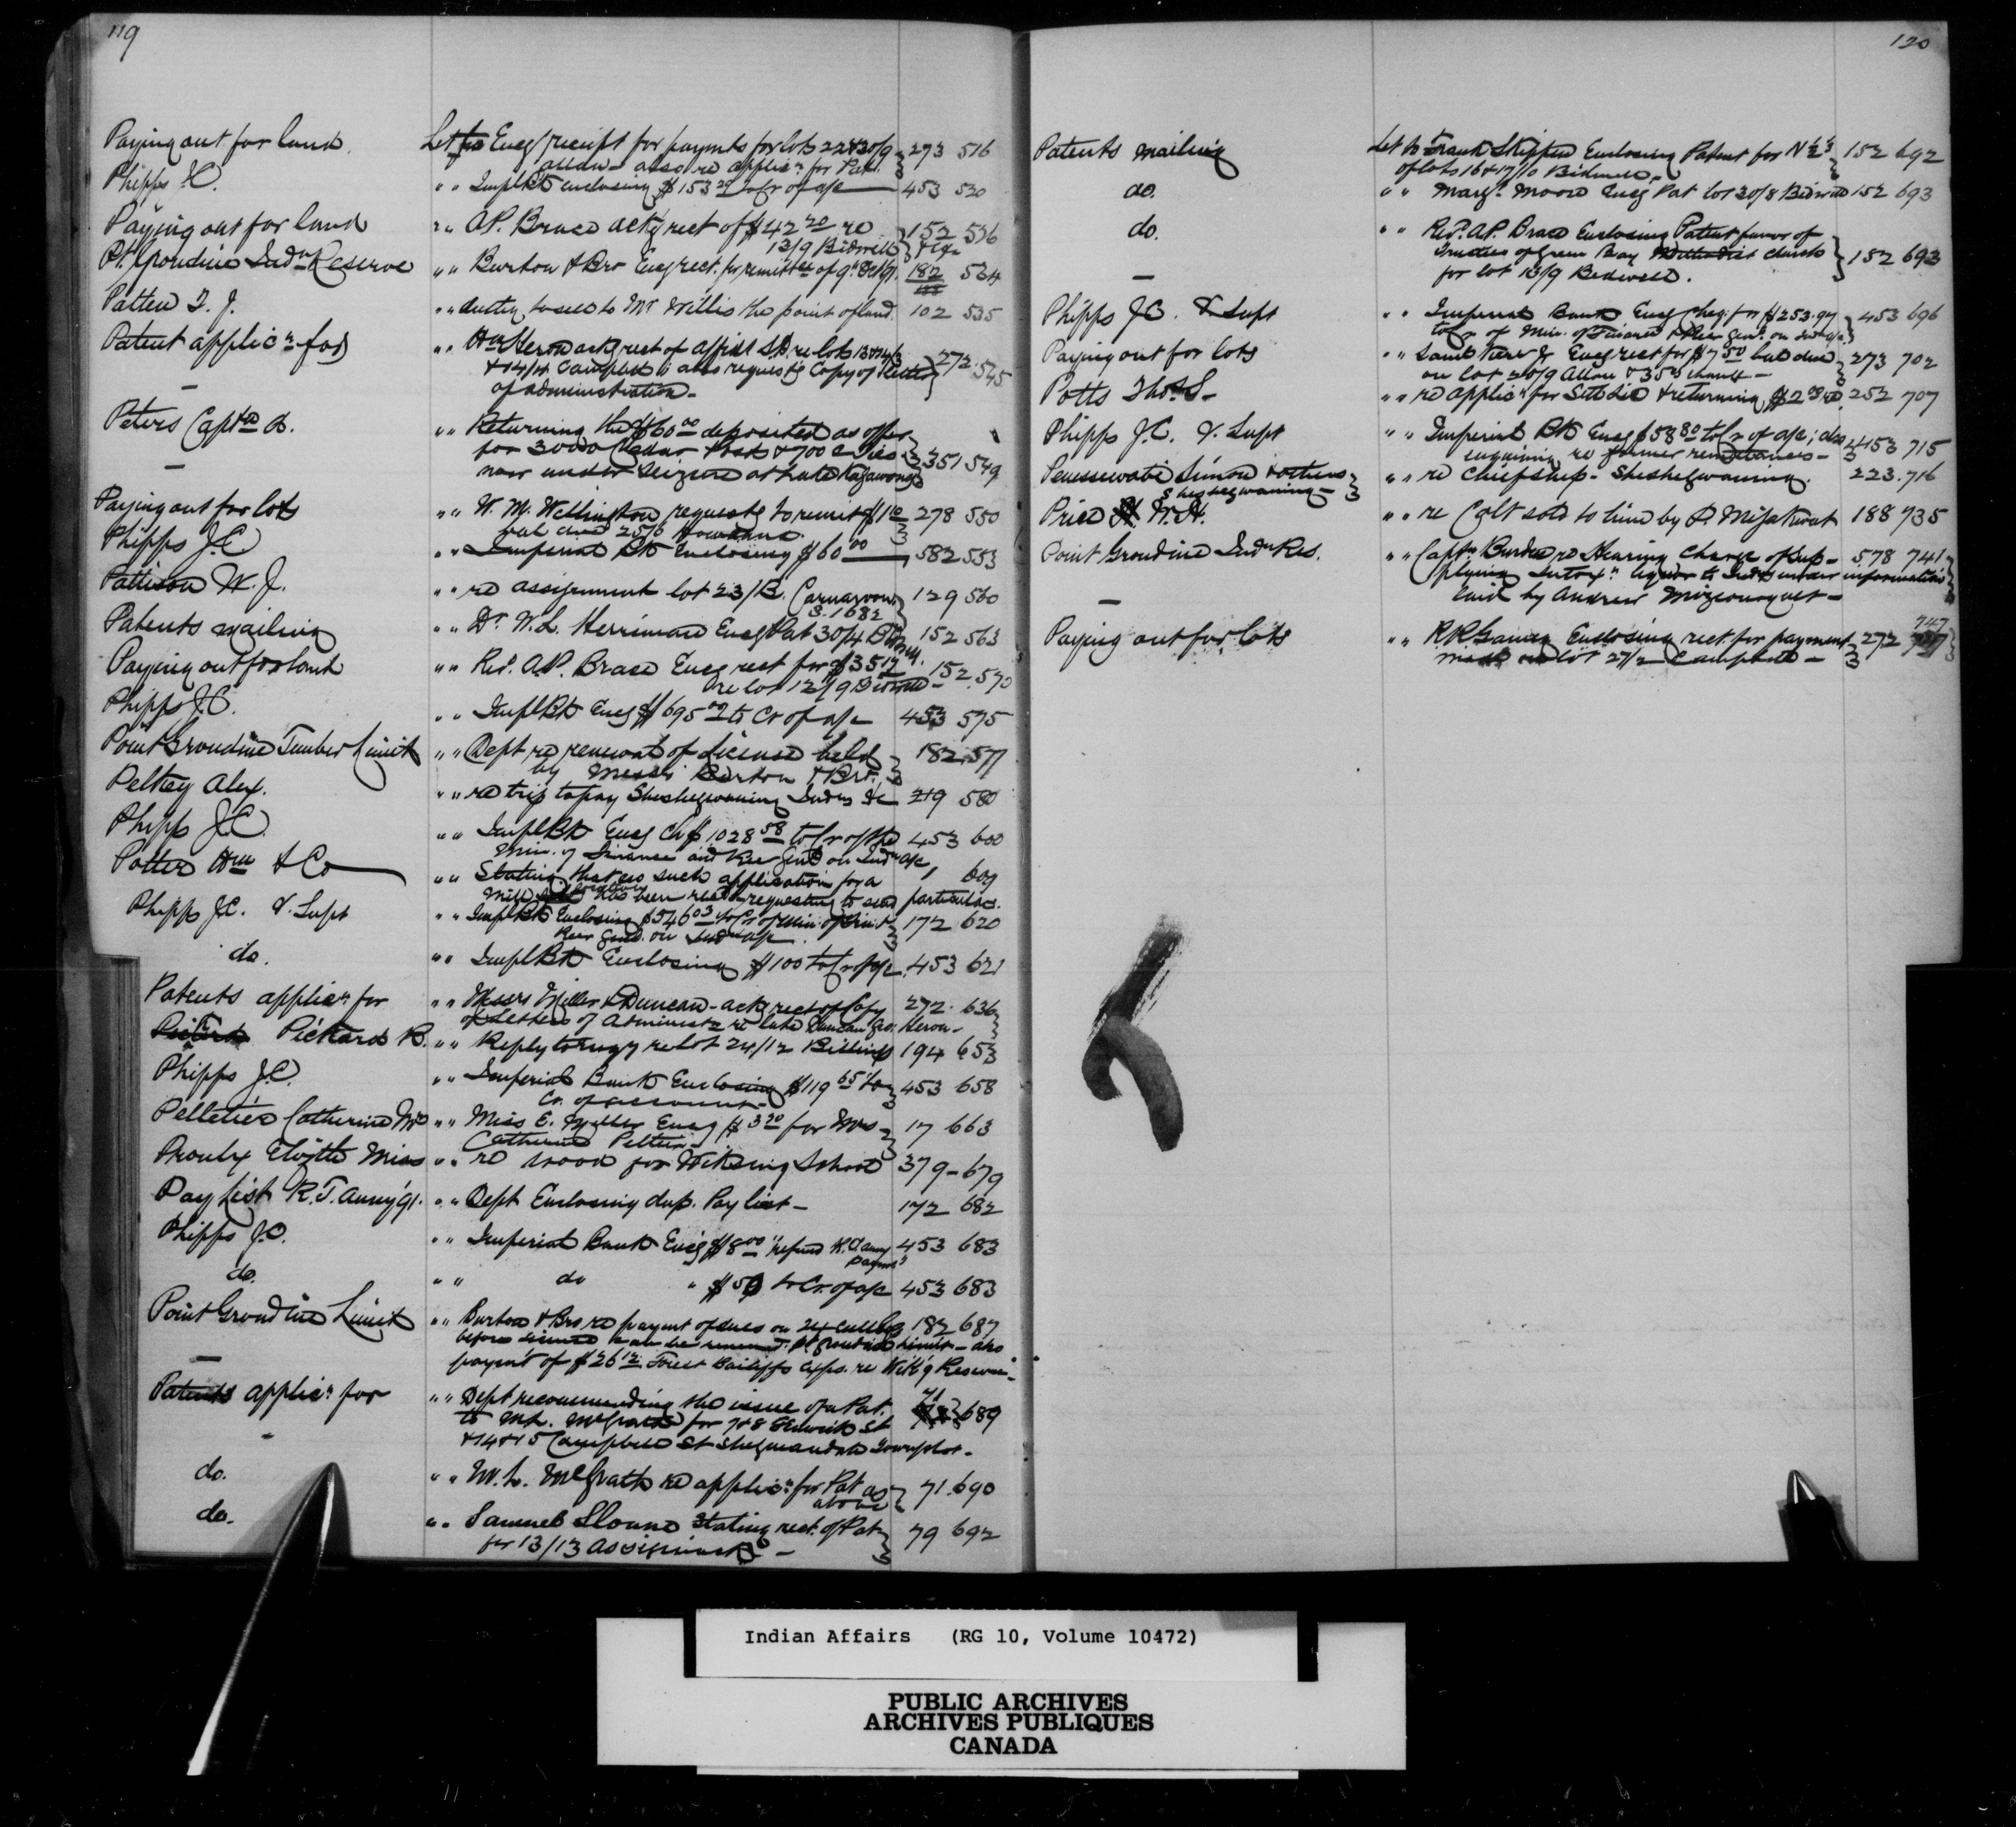 119
Paying out for land Let to Encg receipt for paymts for lots 22 & 30/9 273 516
Allan also re applicn for Pat.
Phipps J.C. " " Impl Bk enclosing $153 20 to Cr of a/c 453 530
Paying out for land " " A.P. Brace ackg rect of $42 20 re 152 536
13/9 Bidwell
Pt. Grondine Indn Reserve " " Burton & Bro Encg rect. for remittce of 9th 182 534
Patten T. J. " " to see to Mr Willis the point of land 102 535
Patent applicn for " " Wm Heron ackg rect of affid re lots 13 & 14/3
& 14/4 Campbell; also requestg Copy of Letters 272 545
of administration -
Peters Captn D. " " Returning the $60 00 deposited as offer
for 3000 Cedar Posts & 700 C Ties 351 549
now under Seizure at Lake Kagawong
Paying out for lots " " W. M. Wellington requestg to remit $1 10 278 550
bal due 25/6 Howland
Phipps J.C " " Imperial Bk Enclosing $60 00 582 553
Pattison W. J. " " re assignment lot 23/B. Carnarvon 129 560
Patents mailing " " Dr W.L. Herriman Encg Pat 30/4 152 563
Paying out for land " " Rev. A.P. Brace Encg rect for $35 12 152 570
re lot 12/9 Bidwell -
Phipps J.C. " " Impl Bk Encg $695 02 to Cr of a/c 453 575
Point Grondine Timber Limit " " Dept re renewal of License held 182 577
by Messrs Burton & Bro.
Peltey Alex. " " re trip to pay Sheshegwaning Indns &c 219 580
Phipps J.C. " " Impl Bk Encg Ch $1028 58 to Cr of the 453 600
Min. of Finance and Rec Genl on Indn a/c
Potter Wm & Co " " Stating that no such application for a 609
Mill location has been recd - requesting to send particulars.
Phipps J.C. V. Supt " " Impl Bk Enclosing $546 03 to Cr of Min. of Fin & 172 620
Rec Genl. on Indn a/c.
do. " " Impl Bk Enclosing $100 to Cr of a/c 453 621
Patents applicn for " " Messrs Miller & Duncan - ackg rect of Copy 272. 636
of Letters of Administn re late Duncan Geo. Heron -
Pickard R. " " Reply to enqy re lot 24/12 Billings 194 653
Phipps J.C. " " Imperial Bank Enclosing $119 65 to 453 658
Cr. of account -
Pelletier Catherine Mrs " " Miss E. Miller Encg $3 20 for Mrs 17 663
Catherine Peltier -
Proulx Elizth Miss " " re wood for Wikwing School 379 - 679
Pay list R.T. Anny '91. " " Dept Enclosing dup. Pay list - 172 682
Phipps J.C. " " Imperial Bank Encg $8 00 "refund R.T. anny 453 683
paymt"
do. " " do " $50 to Cr. of a/c 453 683
Point Grondine Limit " " Burton & Bro re paymt of dues on 24 culls 182 687
before license can be renewed Pt. Grondine Limit - also
paymt of $26 12 Forest Bailiffs exps. re Wikg Reserve -
Patents applicn for " " Dept recommending the issue of a Pat. 71 689
to M.L. McGrath for 7 & 8 St
& 14 & 15 Campbell St Sheguiandah Townplot -
do. " " M. L. McGrath re applicn for Pat as 71. 690
above
do. " " Samuel Sloane Stating rect. of Pat 79 692
for 13/13 Assiginack -
120
Patents mailing Let to Frank Skippen Enclosing Patent for N 1/2s 152 692
of lots 16 & 17/10 Bidwell -
do. " " Margt. Moore Encg Pat lot 30/8 Bidwell 152 693
do. " " Rev. A.P. Brace Enclosing Patent favor of
Trustees of Green Bay Methodist church 152 693
for lot 13/9 Bidwell.
Phipps J.C. V Supt " " Imperial Bank Encg Cheq: for $253.94 453 696
to Cr of Min. of Finance & Rec Genl. on Indn a/c
Paying out for lots " " Saml Encg rect for $7 50 bal due 273 702
on lot 26/9 Allan & 35 c exchange -
Potts Thos. S - " " re applicn for Settlr Lic & returning $2 00 252 707
Phipps J.C. V. Supt " " Imperial Bk Encg $58 80 to Cr of a/c; also 453 715
enquiring re former remittances -
Penessewabi Simon & others " " re Chiefship - Sheshegwaning. 223. 716
Sheshegwaning -
Price W. H. " " re Colt sold to him by P. Misatwat 188 735
Point Grondine Indn Res. " " Captn Burden re Hearing Charge of Sup- 578 741
plying Intoxn liquor to Indns under information
laid by Andrew
Paying out for lots " " R R Gamey Enclosing rect. for payment 272 747
made on lot 27/2 Campbell -
Indian Affairs (RG 10, Volume 10472)
PUBLIC ARCHIVES
ARCHIVES PUBLIQUES
CANADA